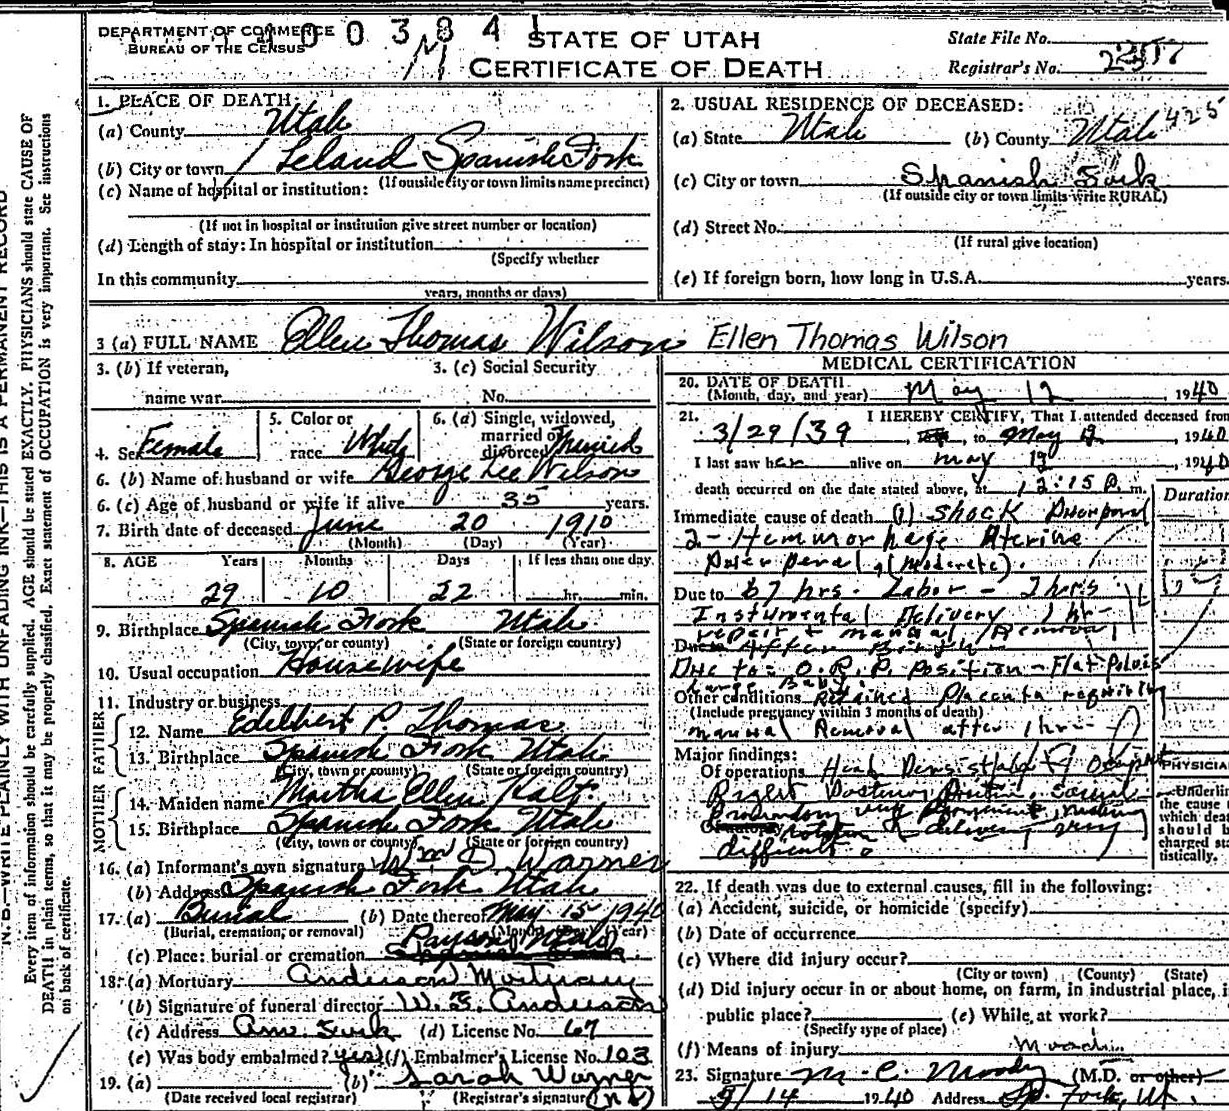 DEPARTMENT OF COMMERCE
BUREAU OF THE CENSUS
1003841
STATE OF UTAH
CERTIFICATE OF DEATH
State File No.
Registrar's No.
1. PLACE OF DEATH
(a) County Utah
(b) City or town Leland Spanish Fork
(If outside city or town limits name precinct)
(c) Name of hospital or institution:
(If not in hospital or institution give street number or location)
(d) Length of stay: In hospital or institution
(Specify whether
In this community
years, months or days)
2. USUAL RESIDENCE OF DECEASED:
(a) State Utah (b) County Utah 425
(c) City or town Spanish Fork
(If outside city or town limits write RURAL)
(d) Street No.
(If rural give location)
(e) If foreign born, how long in U.S.A. years.
3 (a) FULL NAME Ellen Thomas Wilson Ellen Thomas Wilson
3. (b) If veteran,
name war
3. (c) Social Security
No.
4. Sex Female
5. Color or
race White
6. (a) Single, widowed,
married or
divorced Married
6. (b) Name of husband or wife George Lee Wilson
6. (c) Age of husband or wife if alive 35 years.
7. Birth date of deceased June 20 1910
(Month) (Day) (Year)
8. AGE Years Months Days If less than one day
29 10 22 hr. min.
9. Birthplace Spanish Fork Utah
(City, town, or county) (State or foreign country)
10. Usual occupation Housewife
11. Industry or business
FATHER
12. Name Edelbert P Thomas
13. Birthplace Spanish Fork Utah
(City, town or county) (State or foreign country)
MOTHER
14. Maiden name Martha Ellen
15. Birthplace Spanish Fork Utah
(City, town or county) (State or foreign country)
16. (a) Informant's own signature Wm D. Warner
(b) Address Spanish Fork Utah
17. (a) Burial (b) Date thereof May 15 1940
(Burial, cremation, or removal) (Month) (Day) (Year)
Payson Utah
(c) Place: burial or cremation
18. (a) Mortuary Anderson Mortuary
(b) Signature of funeral director W. F. Anderson
(c) Address Am. Fork (d) License No. 67
(e) Was body embalmed? yes (f) Embalmer's License No. 103
19. (a) (b) Sarah Warner
(Date received local registrar) (Registrar's signature)
MEDICAL CERTIFICATION
20. DATE OF DEATH
(Month, day, and year) May 12 1940
21. I HEREBY CERTIFY, That I attended deceased from
3/29/39, to May 12, 1940
I last saw her alive on May 12, 1940
death occurred on the date stated above, at 12:15 P. m.
Duration
Immediate cause of death (1) Shock
2- Hemmorhage Uterine
(Moderate).
Due to 67 hrs. Labor - 7 hrs
Instrumental Delivery 1 hr-
repair & manual Removal
Due to After Birth
Due to- O.R.P. Position - Flat Pelvis
Large Baby.
Other conditions Retained Placenta requiring
(Include pregnancy within 3 months of death)
manual Removal after 1 hr-
Major findings:
Of operations Head
Right
Prominent, making
Of autopsy rotation & delivery very
difficult.
PHYSICIAN
Underline
the cause
which death
should
charged sta-
tistically.
22. If death was due to external causes, fill in the following:
(a) Accident, suicide, or homicide (specify)
(b) Date of occurrence
(c) Where did injury occur?
(City or town) (County) (State)
(d) Did injury occur in or about home, on farm, in industrial place, i
public place? (e) While at work?
(Specify type of place)
(f) Means of injury
23. Signature M. C. Moody (M.D. or other)
5/14 1940 Address Sp. Fork, Ut.
N. B.—WRITE PLAINLY WITH UNFADING INK—THIS IS A PERMANENT RECORD
Every item of information should be carefully supplied. AGE should be stated EXACTLY. PHYSICIANS should state CAUSE OF
DEATH in plain terms, so that it may be properly classified. Exact statement of OCCUPATION is very important. See instructions
on back of certificate.